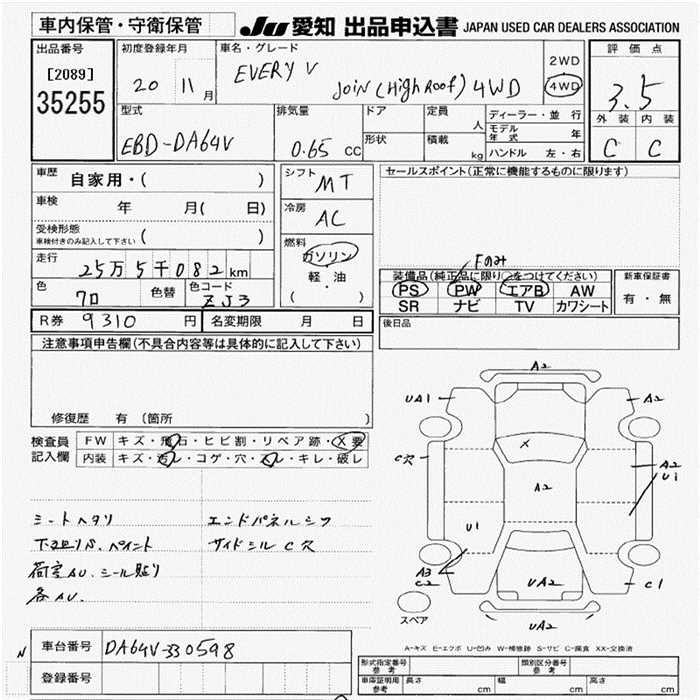 車内保管・守衛保管
JU 愛知 出品申込書 JAPAN USED CAR DEALERS ASSOCIATION
出品番号
[2089]
35255
初度登録年月
20 11月
車名・グレード
EVERY V
JOIN (High Roof) 4WD
2WD
4WD
評価点
3.5
外装 内装
C C
型式
EBD-DA64V
排気量
0.65 CC
ドア
形状
定員 人
積載 kg
ディーラー・並行
モデル年式 年
ハンドル 左・右
車歴
自家用・( )
車検 年 月( 日)
受検形態
車検付きのみ記入して下さい ( )
走行
25万5千082km
色
クロ
色替
色コード
ZJ3
シフト
MT
冷房
AC
燃料
ガソリン
軽・油
( )
セールスポイント(正常に機能するものに限ります)
Fのみ
装備品(純正品に限り○をつけてください)
PS PW エアB AW
SR ナビ TV カワシート
新車保証書
有・無
R券 9310 円
名変期限 月 日
後日品
注意事項申告欄(不具合内容等は具体的に記入して下さい)
修復歴 有 〔箇所 〕
検査員
記入欄
FW キズ・飛石・ヒビ割・リペア跡・X要
内装 キズ・汚レ・コゲ・穴・スレ・キレ・破レ
シートヘタリ
エンドパネルシワ
下回りS.ペイント
サイドシルC穴
荷室AU.シール貼り
各AU.
A2
UA1
A2
C穴
X
A2
A2
U1
U1
A3
C2
UA2
C1
UA2
スペア
A-キズ E-エクボ U-凹み W-補修跡 S-サビ C-腐食 XX-交換済
N
車台番号 DA64V-330598
登録番号
形式指定番号
参考
類別区分番号
参考
車庫証明用
参考
長さ cm
幅 cm
高さ cm